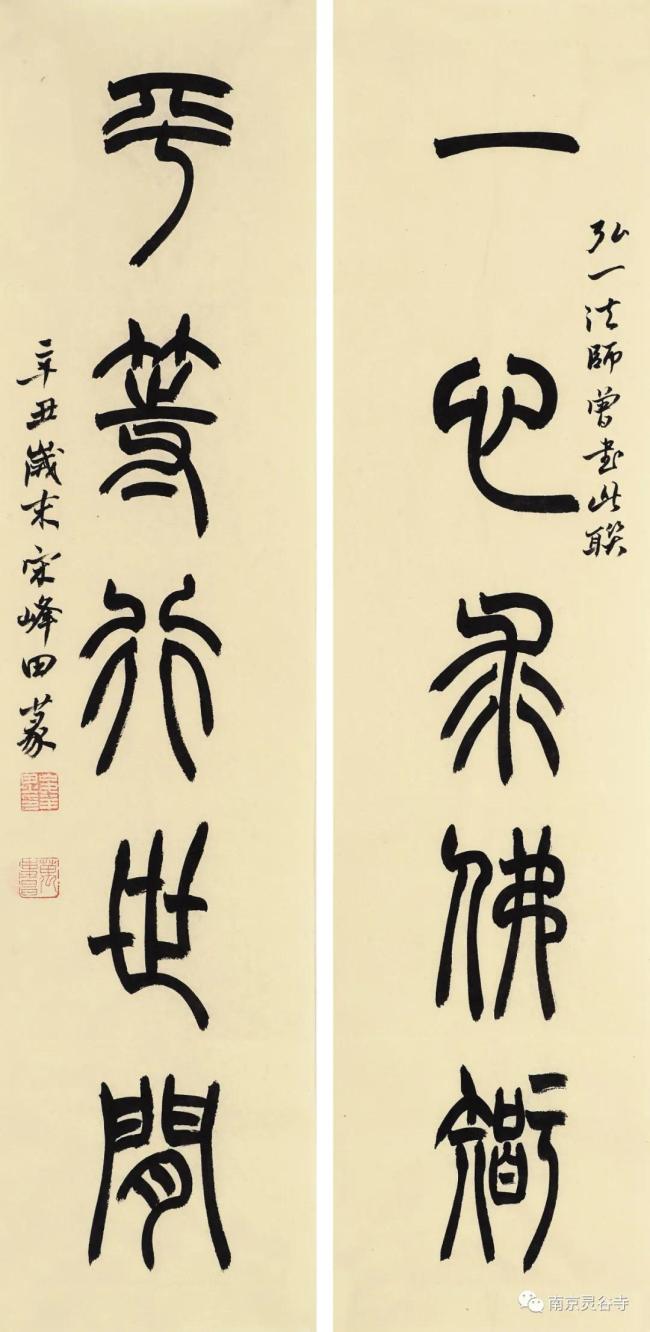 弘一法師曾書此聯
一心求佛智
平等行世間
辛丑歲末宋峰田篆
南京灵谷寺